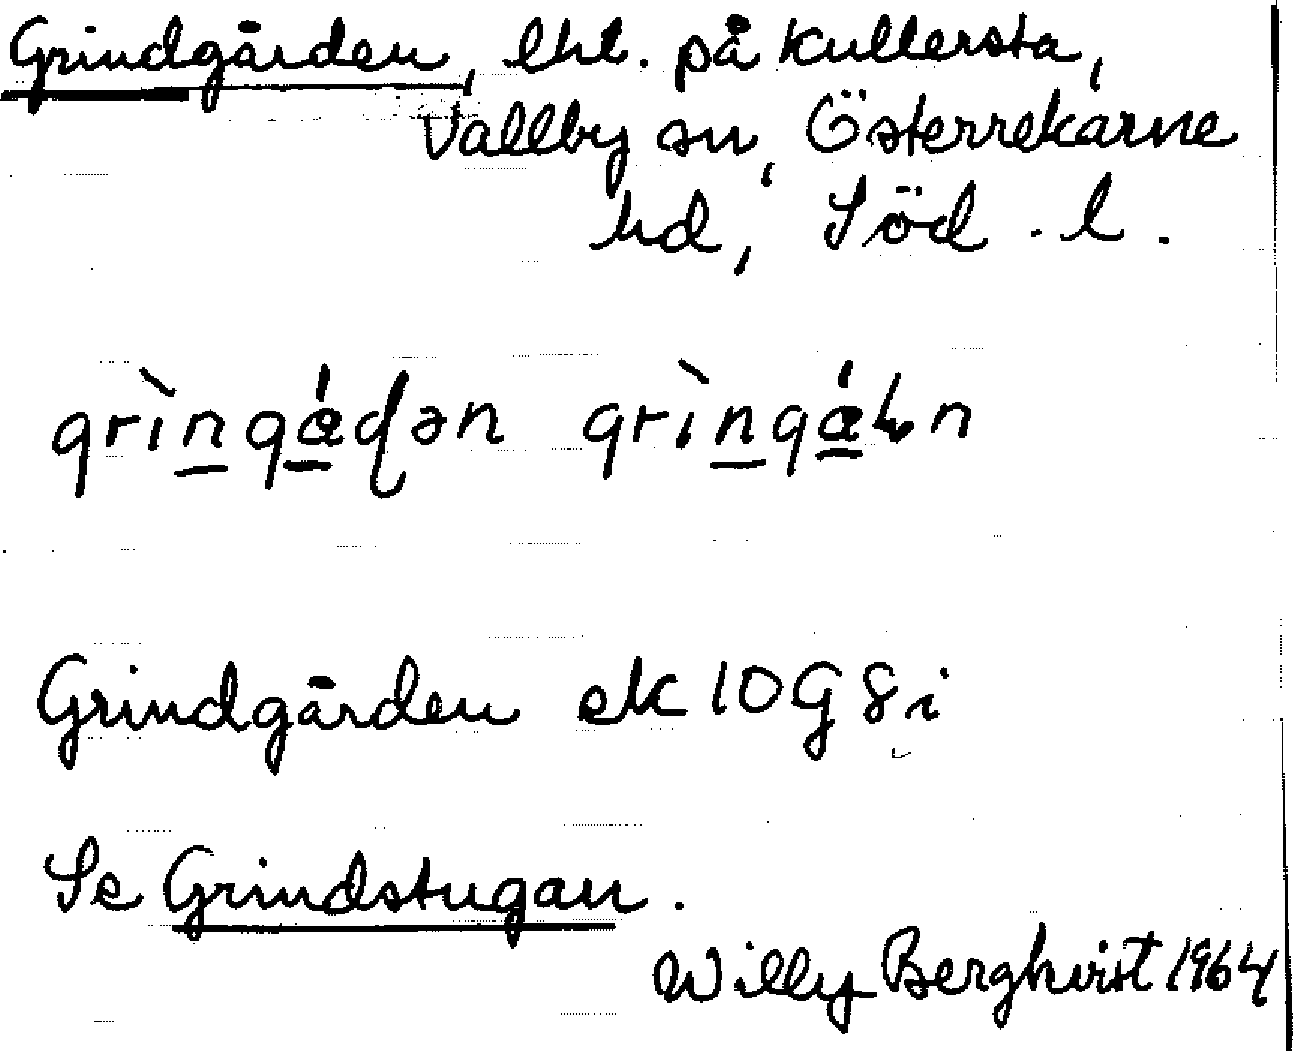 Grindgården, lht. på Kullersta,
Vallby sn, Österrekarne
hd, Söd. l.
Grindgården ek 10G 8i
Se Grindstugan.
Willy Bergkvist 1964